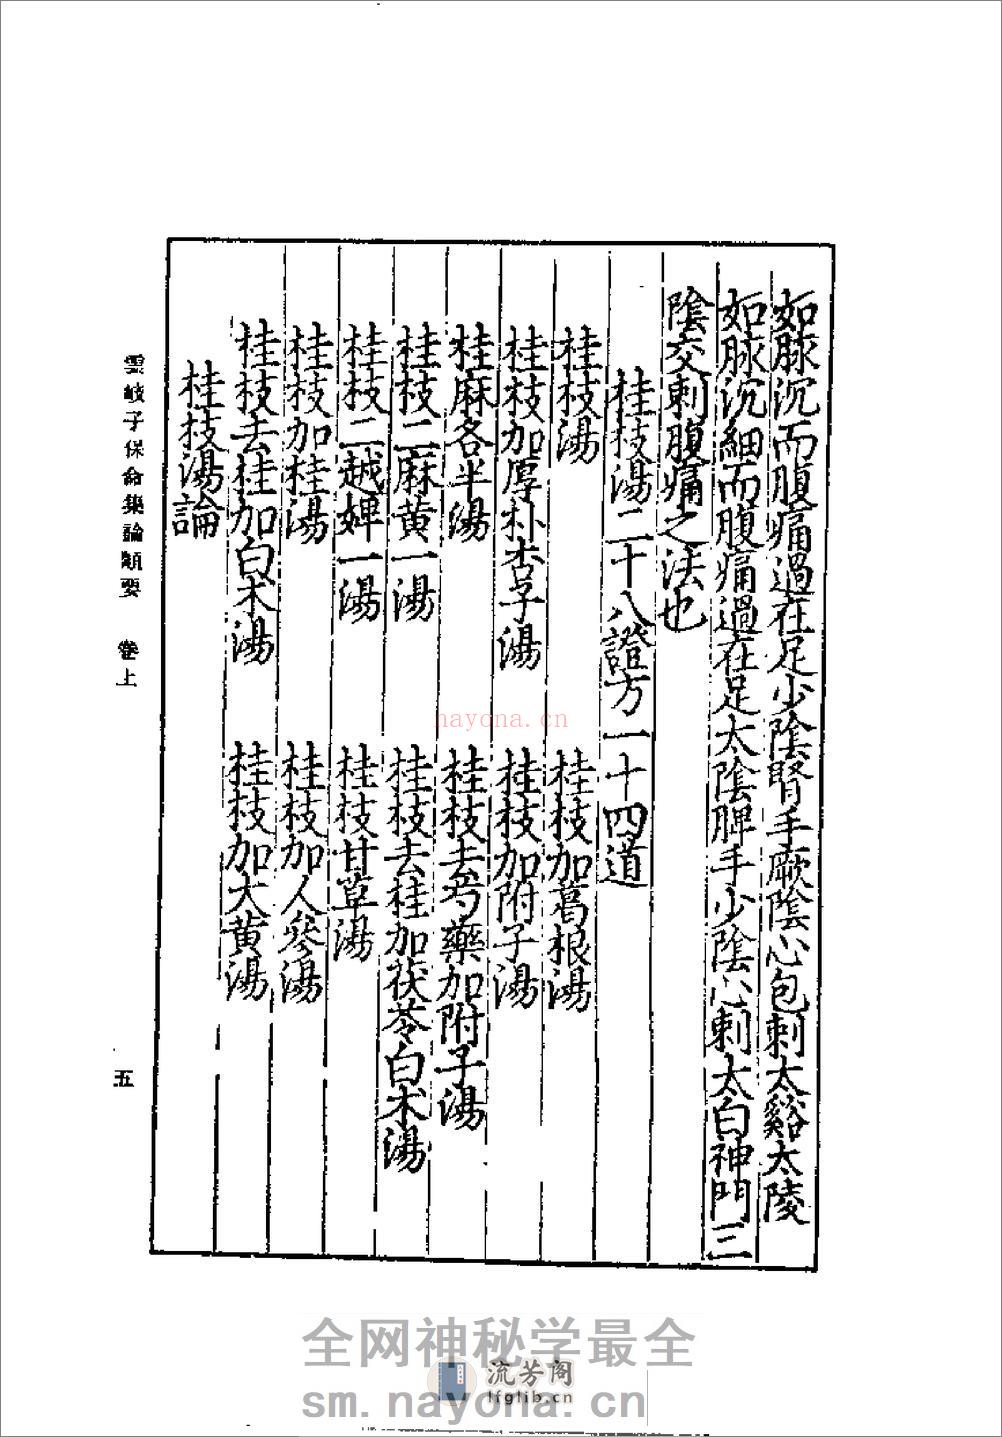 如脉沉而腹痛過在足少陰腎手厥陰心包刺太谿太陵
如脉沉細而腹痛過在足太陰脾手少陰心刺太白神門三
陰交刺腹痛之法也
桂枝湯二十八證方一十四道
桂枝湯 桂枝加葛根湯
桂枝加厚朴杏子湯 桂枝加附子湯
桂麻各半湯 桂枝去芍藥加附子湯
桂枝二麻黄一湯 桂枝去桂加茯苓白术湯
桂枝二越婢一湯 桂枝甘草湯
桂枝加桂湯 桂枝加人參湯
桂枝去桂加白术湯 桂枝加大黄湯
桂枝湯論
雲岐子保命集論類要 卷上
五
nayona.cn
全网神秘学最全
流芳阁
lfglib.cn
sm.nayona.cn